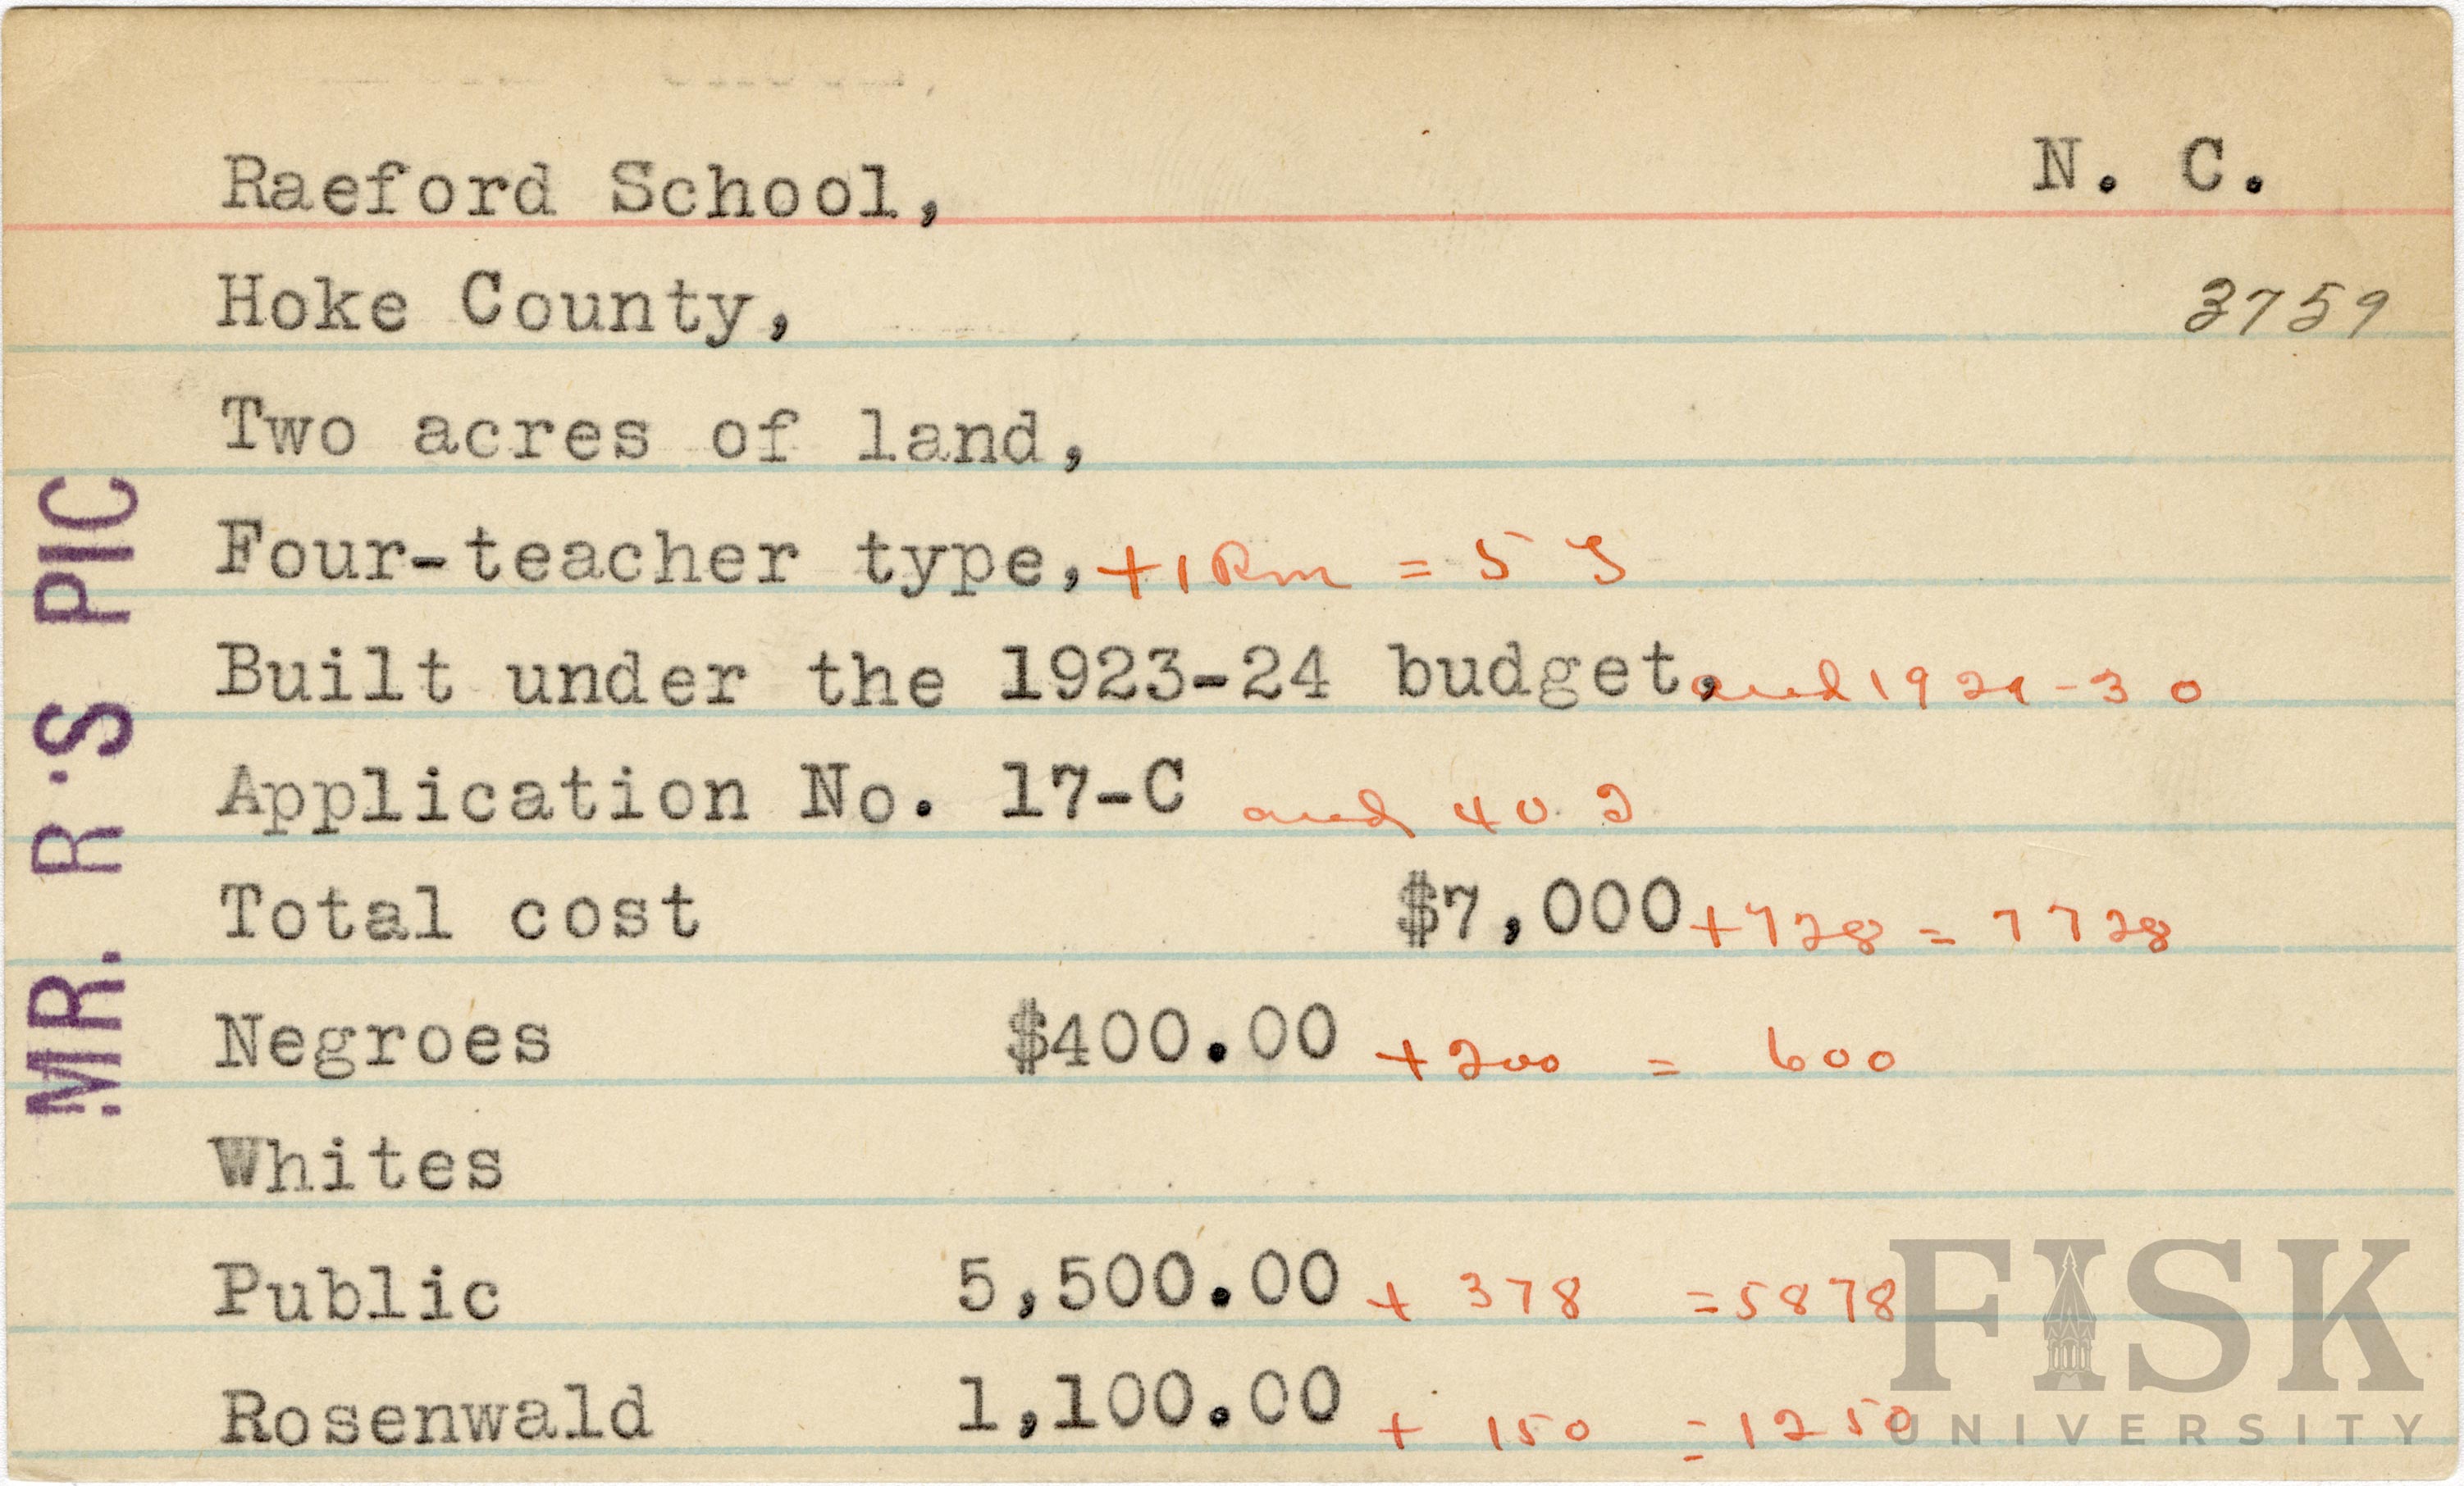 Raeford School, N. C.
Hoke County, 3759
Two acres of land,
Four-teacher type, +1 Rm = 5 T
Built under the 1923-24 budget, and 1929-30
Application No. 17-C and 402
Total cost $7,000 +728 = 7728
Negroes $400.00 +200 = 600
Whites
Public 5,500.00 + 378 =5878
Rosenwald 1,100.00 + 150 =1250
MR. R·S PIC
FISK
UNIVERSITY